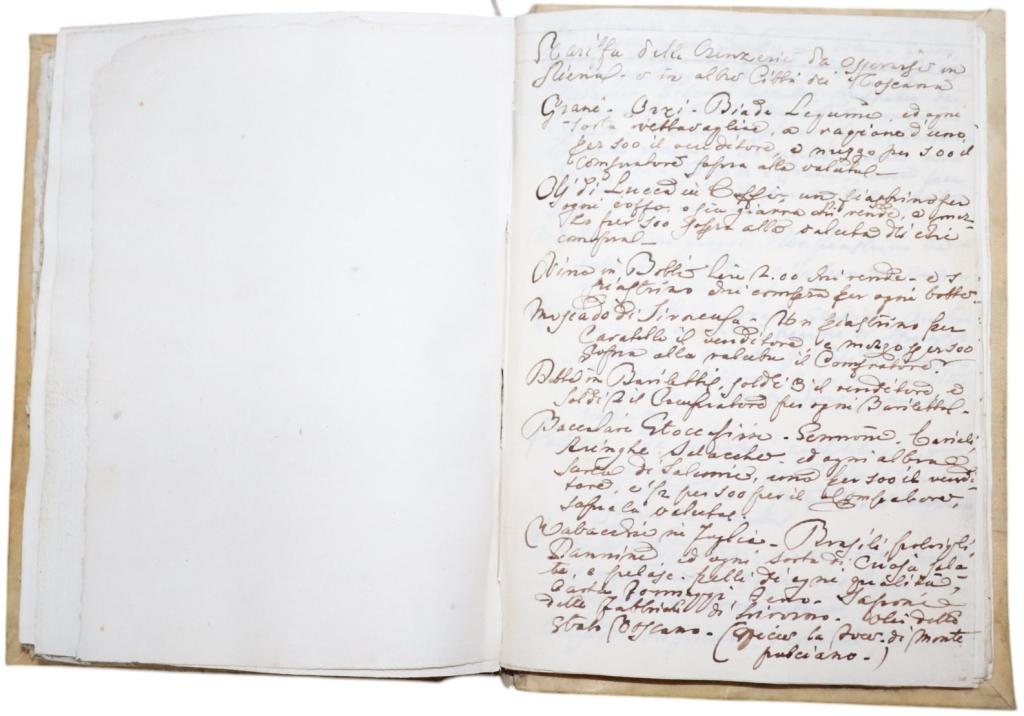 Tariffa delle Senzerie da osservarsi in
Siena - e in altre Città di Toscana
Grani - Orzi - Biade Legumi, ed ogni
sorta vettovaglie, a ragione d'uno
per 100 il venditore, e mezzo per 100 il
Compratore sopra alla valuta -
Olj di Lucca in Coffi, un giastrino per
ogni coffo, o sia gianna chi vende, e mez-
zo per 100 sopra alla valuta di chi
compra -
Vino in Botti lire 2.00 chi vende - e 1
giastrino chi compra per ogni botte -
Moscado di Siracusa - Un giastrino per
Caratello il venditore, e mezzo per 100
sopra alla valuta il Compratore
in Barilotti, soldi 3 il venditore, e
soldi 2 il Compratore per ogni Barilotto -
Baccalare - Salmone,
Aringhe Salacche - ed ogni altra
sorta di Salumi, uno per 100 il vendi-
tore, e 1/2 per 100 per il Compratore,
sopra la valuta.
Tabacchi in foglia - Brasili,
ed ogni sorta di Cuoja sala-
te, e pelose - pelli di ogni qualità,
Carta - Sapone
delle Fabbriche di Livorno - Olj dello
Stato Toscano -
pulciano - )